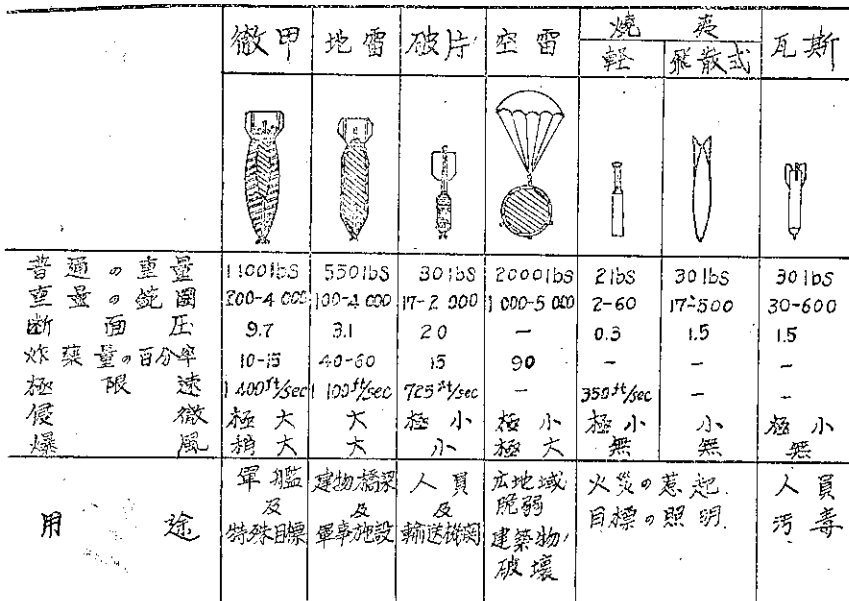 徹甲 地雷 破片 空雷 燒夷 瓦斯
軽 飛散式
普通の重量 1100lbs 550lbs 30lbs 2000lbs 2lbs 30lbs 30lbs
重量の範囲 200-4000 100-4000 17-2000 1000-5000 2-60 17-500 30-600
断面圧 9.7 3.1 20 — 0.3 1.5 1.5
炸薬量の百分率 10-15 40-60 15 90 — — —
極限速 1400ft/sec 1100ft/sec 725ft/sec — 350ft/sec — —
侵徹 極大 大 極小 極小 極小 小 極小
爆風 稍大 大 小 極大 無 無 無
用途
軍艦及特殊目標
建物橋梁及軍事施設
人員及輸送機関
広地域脆弱建築物ノ破壊
火災の惹起
目標の照明
人員汚毒